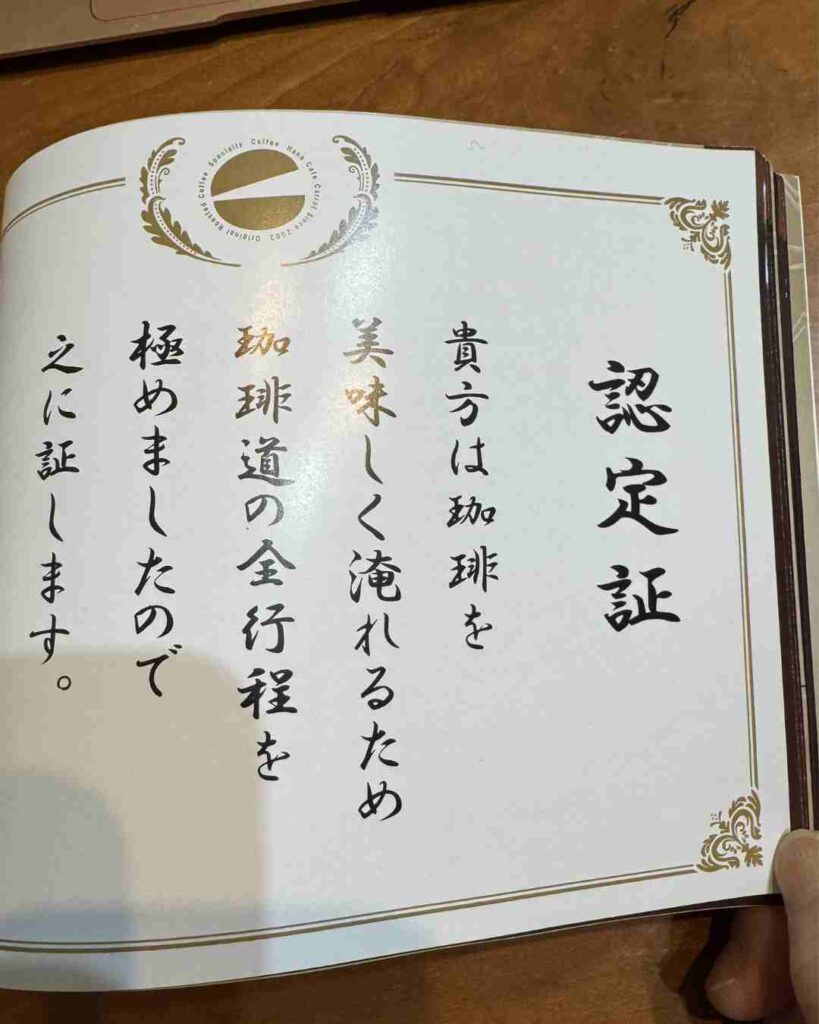 認定証
貴方は珈琲を
美味しく淹れるため
珈琲道の全行程を
極めましたので
之に証します。
Original Roasted Coffee Specialty Coffee Hana Cafe Carrot Since 2002.